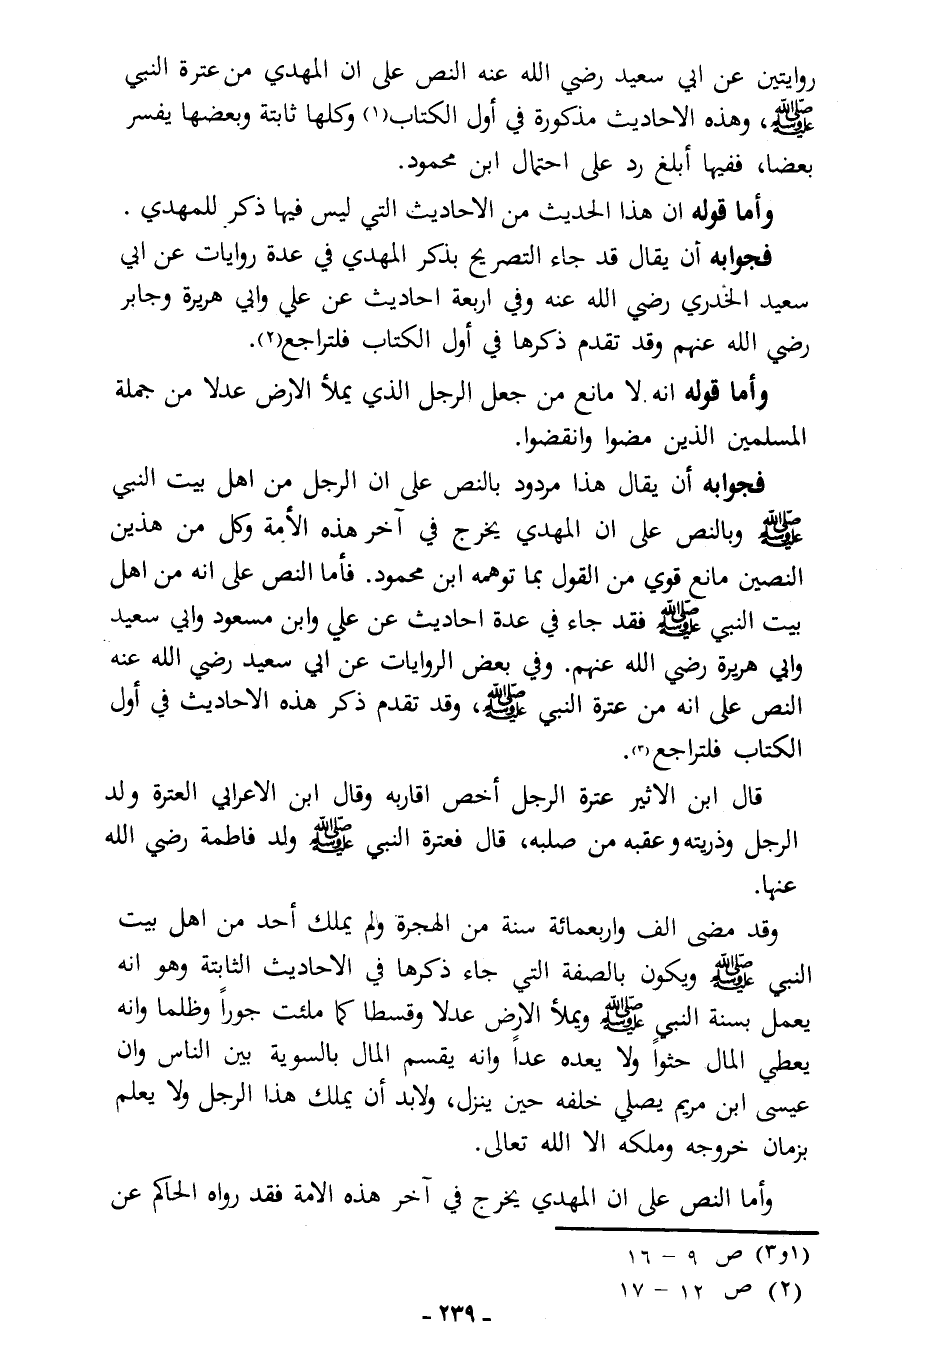 روايتين عن ابي سعيد رضي الله عنه النص على ان المهدي من عترة النبي
ﷺ، وهذه الاحاديث مذكورة في أول الكتاب(١) وكلها ثابتة وبعضها يفسر
بعضا، ففيها أبلغ رد على احتمال ابن محمود.
وأما قوله ان هذا الحديث من الاحاديث التي ليس فيها ذكر للمهدي .
فجوابه أن يقال قد جاء التصريح بذكر المهدي في عدة روايات عن ابي
سعيد الخدري رضي الله عنه وفي اربعة احاديث عن علي وابي هريرة وجابر
رضي الله عنهم وقد تقدم ذكرها في أول الكتاب فلتراجع(٢).
وأما قوله انه لا مانع من جعل الرجل الذي يملأ الارض عدلا من جملة
المسلمين الذين مضوا وانقضوا.
فجوابه أن يقال هذا مردود بالنص على ان الرجل من اهل بيت النبي
ﷺ وبالنص على ان المهدي يخرج في آخر هذه الأمة وكل من هذين
النصين مانع قوي من القول بما توهمه ابن محمود. فأما النص على انه من اهل
بيت النبي ﷺ فقد جاء في عدة احاديث عن علي وابن مسعود وابي سعيد
وابي هريرة رضي الله عنهم. وفي بعض الروايات عن ابي سعيد رضي الله عنه
النص على انه من عترة النبي ﷺ، وقد تقدم ذكر هذه الاحاديث في أول
الكتاب فلتراجع(٣).
قال ابن الاثير عترة الرجل أخص اقاربه وقال ابن الاعرابي العترة ولد
الرجل وذريته وعقبه من صلبه، قال فعترة النبي ﷺ ولد فاطمة رضي الله
عنها.
وقد مضى الف واربعمائة سنة من الهجرة ولم يملك أحد من اهل بيت
النبي ﷺ ويكون بالصفة التي جاء ذكرها في الاحاديث الثابتة وهو انه
يعمل بسنة النبي ﷺ ويملأ الارض عدلا وقسطا كما ملئت جوراً وظلما وانه
يعطي المال حثواً ولا يعده عداً وانه يقسم المال بالسوية بين الناس وان
عيسى ابن مريم يصلي خلفه حين ينزل، ولابد أن يملك هذا الرجل ولا يعلم
بزمان خروجه وملكه الا الله تعالى.
وأما النص على ان المهدي يخرج في آخر هذه الامة فقد رواه الحاكم عن
(١و٣) ص ٩ – ١٦
(٢) ص ١٢ – ١٧
- ٢٣٩ -